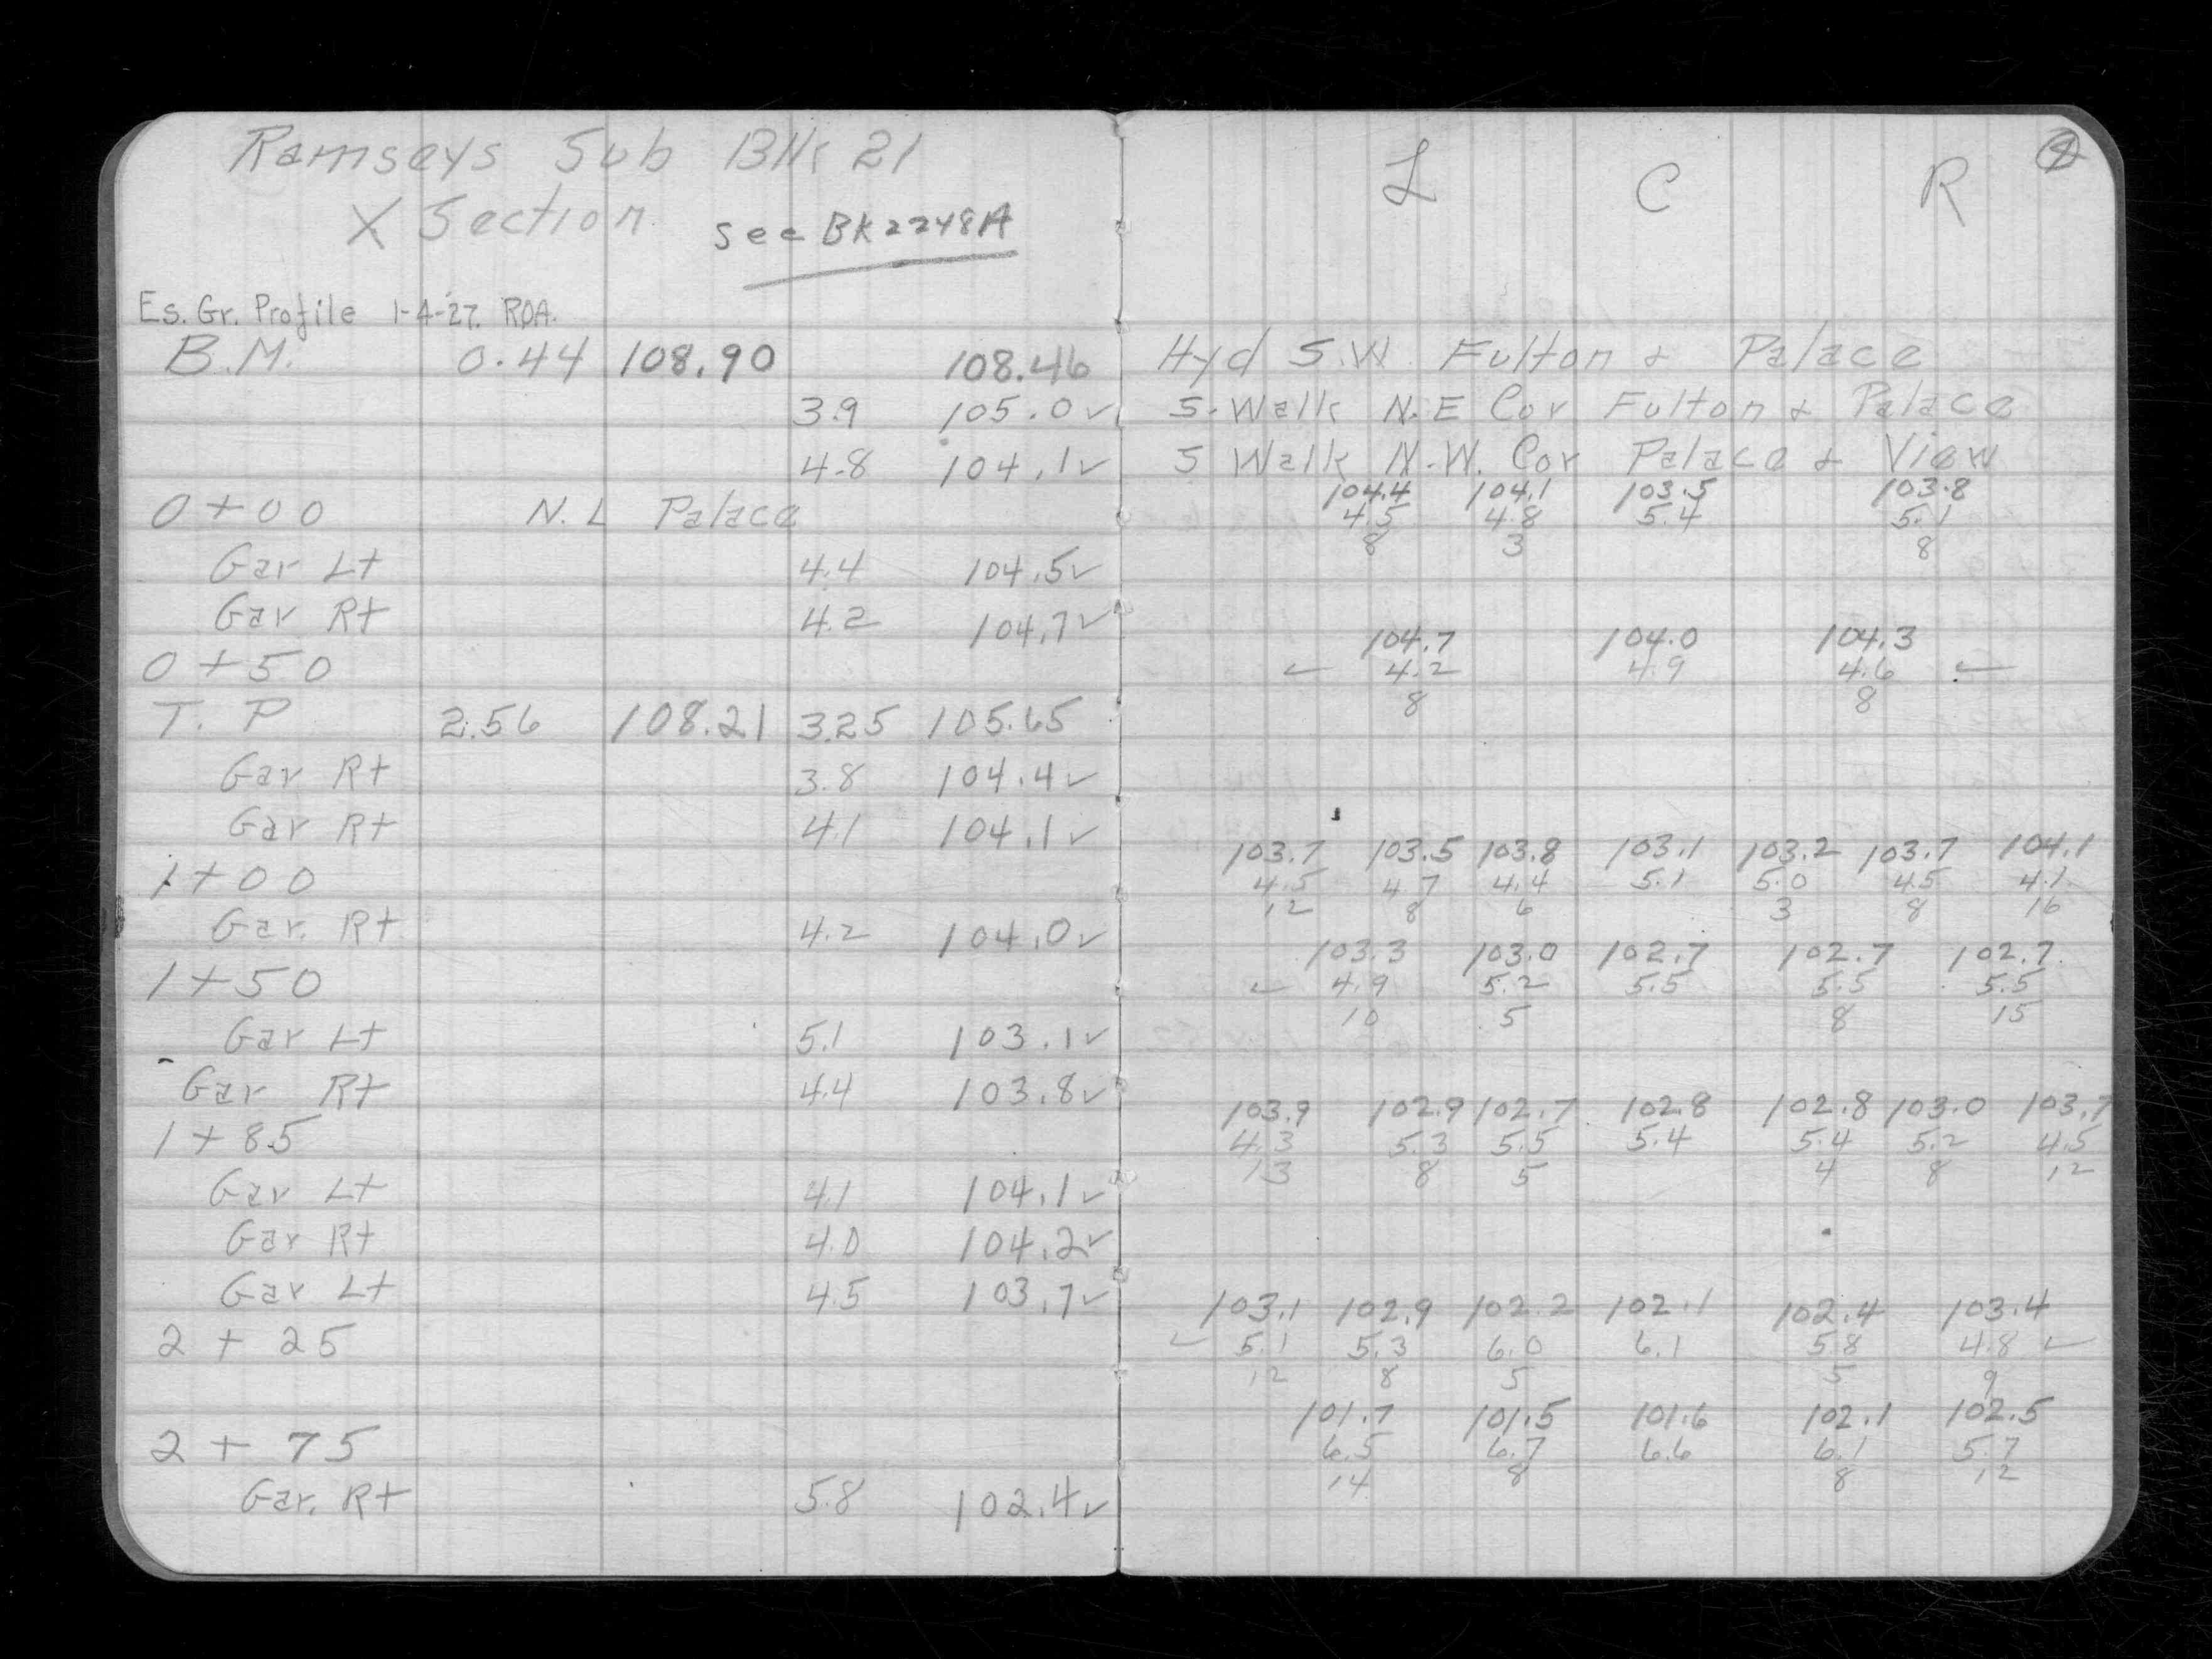 Ramseys Sub Blk 21
X Section
see BK 2248A
Es. Gr. Profile 1-4-27. RDA.
B.M. 0.44 108.90 108.46
3.9 105.0 ✓
4.8 104.1 ✓
0+00 N.L Palace
Gar Lt 4.4 104.5 ✓
Gar Rt 4.2 104.7 ✓
0+50
T.P 2.56 108.21 3.25 105.65
Gar Rt 3.8 104.4 ✓
Gar Rt 4.1 104.1 ✓
1+00
Gar. Rt 4.2 104.0 ✓
1+50
Gar Lt 5.1 103.1 ✓
Gar Rt 4.4 103.8 ✓
1+85
Gar Lt 4.1 104.1 ✓
Gar Rt 4.0 104.2 ✓
Gar Lt 4.5 103.7 ✓
2+25
2+75
Gar. Rt 5.8 102.4 ✓
L C R
Hyd S.W. Fulton & Palace
S-Walk N.E Cor Fulton & Palace
S Walk N.W. Cor Palace & View
104.4 104.1 103.5 103.8
4.5 4.8 5.4 5.1
8 3 8
104.7 104.0 104.3
✓ 4.2 4.9 4.6 ✓
8 8
103.7 103.5 103.8 103.1 103.2 103.7 104.1
4.5 4.7 4.4 5.1 5.0 4.5 4.1
12 8 6 3 8 16
103.3 103.0 102.7 102.7 102.7
✓ 4.9 5.2 5.5 5.5 5.5
10 5 8 15
103.9 102.9 102.7 102.8 102.8 103.0 103.7
4.3 5.3 5.5 5.4 5.4 5.2 4.5
13 8 5 4 8 12
103.1 102.9 102.2 102.1 102.4 103.4
✓ 5.1 5.3 6.0 6.1 5.8 4.8 ✓
12 8 5 5 9
101.7 101.5 101.6 102.1 102.5
6.5 6.7 6.6 6.1 5.7
14 8 8 12